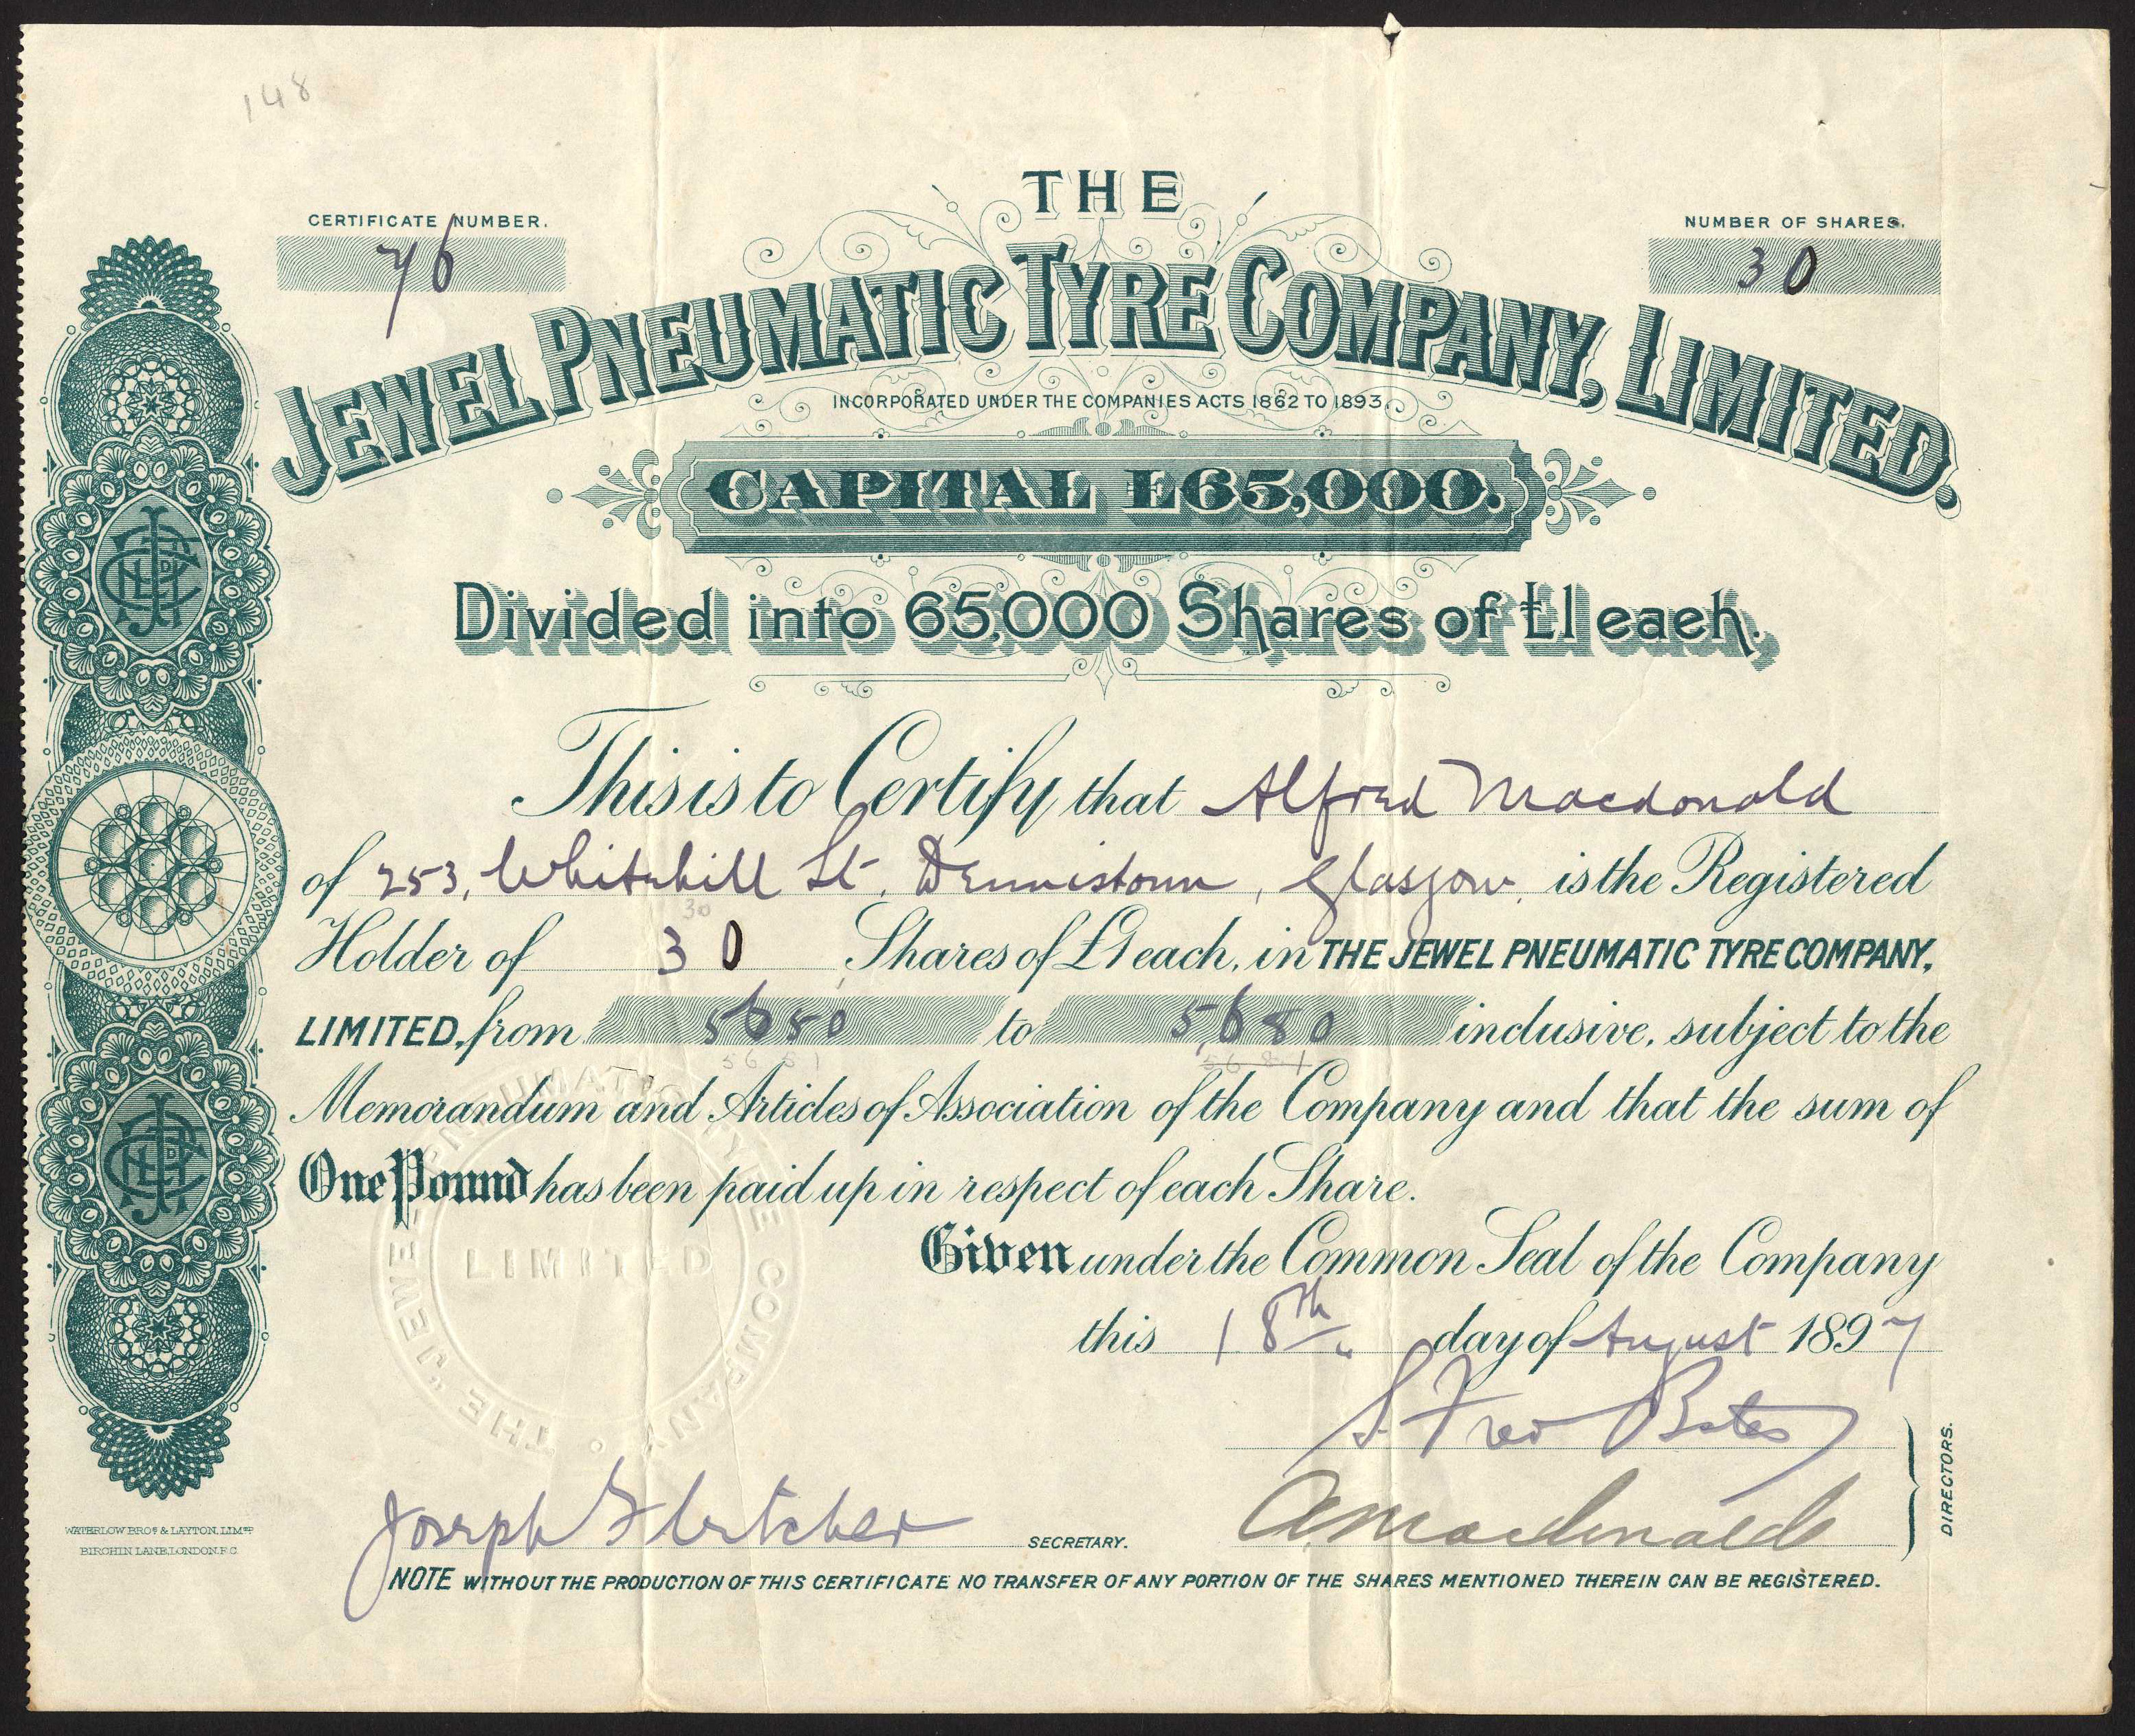 148
THE
CERTIFICATE NUMBER.
76
NUMBER OF SHARES.
30
JEWEL PNEUMATIC TYRE COMPANY, LIMITED.
INCORPORATED UNDER THE COMPANIES ACTS 1862 TO 1893.
CAPITAL £65,000.
Divided into 65,000 Shares of £1 each,
This is to Certify that Alfred Macdonald
of 253, Whitehill St. Dennistoun, Glasgow, is the Registered
30
Holder of 30 Shares of £1 each, in THE JEWEL PNEUMATIC TYRE COMPANY,
LIMITED, from 5650 to 5,680 inclusive, subject to the
5651 5681
Memorandum and Articles of Association of the Company and that the sum of
One Pound has been paid up in respect of each Share.
Given under the Common Seal of the Company
this 18th day of August 1897
THE "JEWEL" PNEUMATIC TYRE COMPANY
LIMITED
S. Fred Bates
AMacdonald
DIRECTORS.
Joseph Fletcher SECRETARY.
WATERLOW BROS & LAYTON, LIMTD
BIRCHIN LANE, LONDON. E.C.
NOTE WITHOUT THE PRODUCTION OF THIS CERTIFICATE NO TRANSFER OF ANY PORTION OF THE SHARES MENTIONED THEREIN CAN BE REGISTERED.